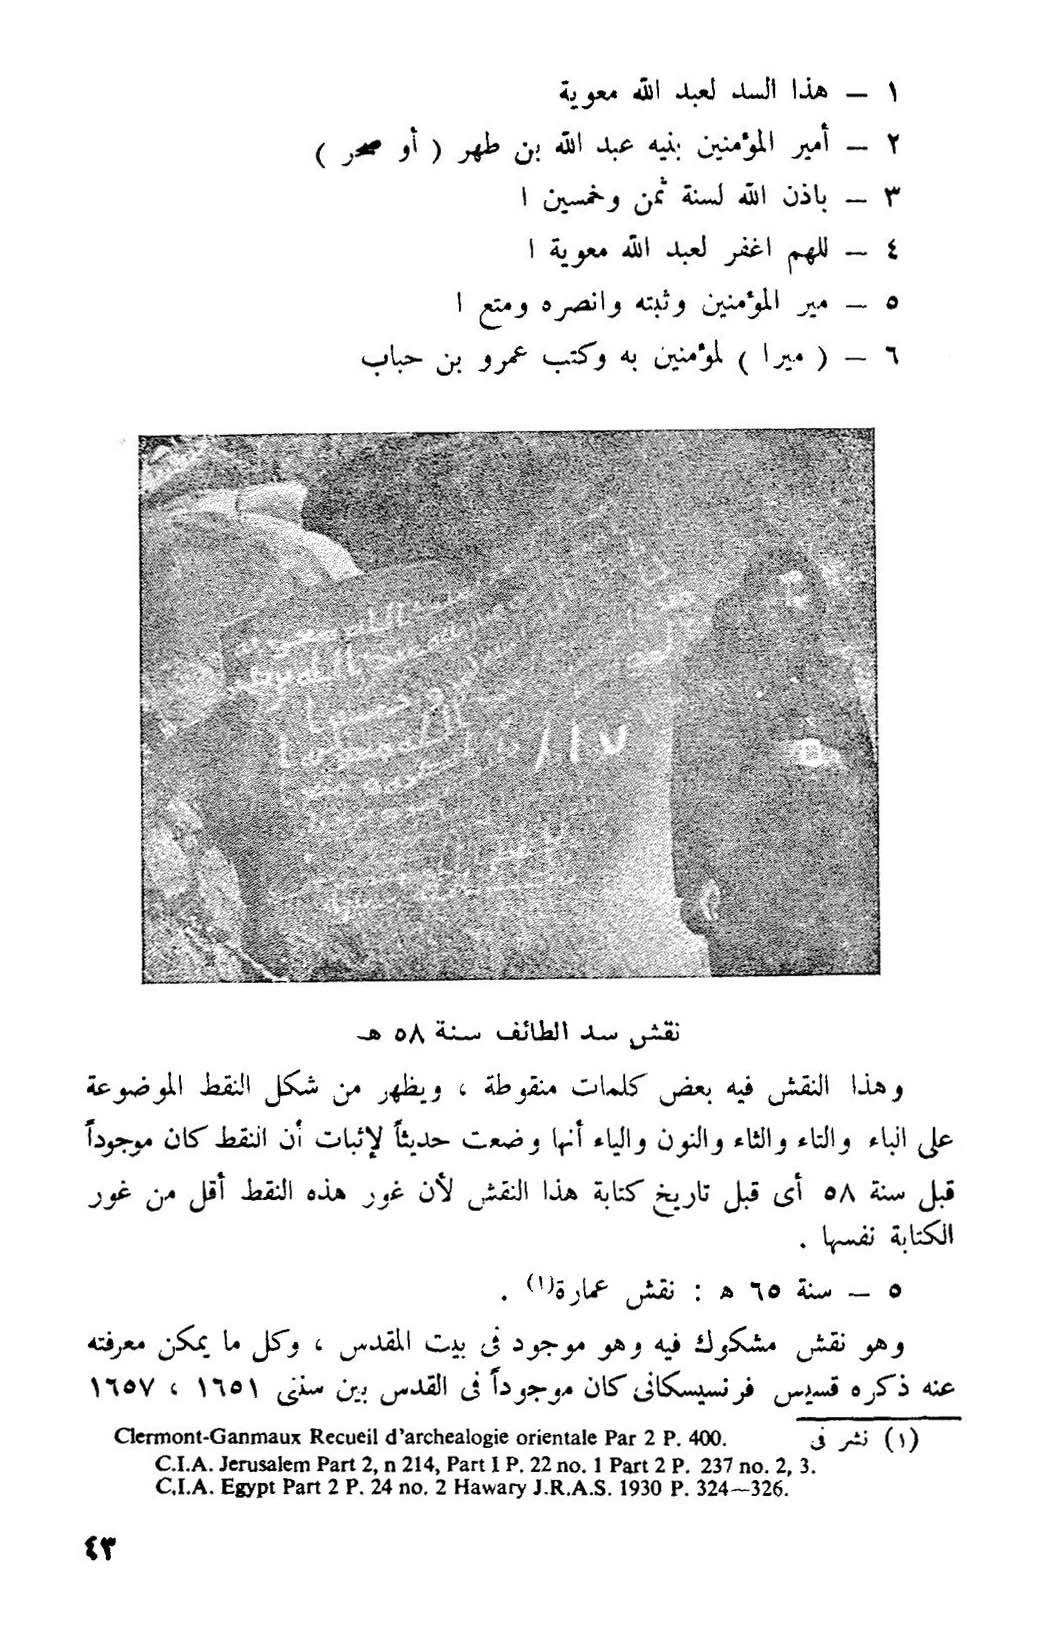 ١ – هذا السد لعبد الله معوية
٢ – أمير المؤمنين بنيه عبد الله بن طهر ( أو صخر )
٣ – باذن الله لسنة ثمن وخمسين ا
٤ – للهم اغفر لعبد الله معوية ا
٥ – مير المؤمنين وثبته وانصره ومتع ا
٦ – ( ميرا ) لمؤمنين به وكتب عمرو بن حباب
نقش سد الطائف سنة ٥٨ هـ
وهذا النقش فيه بعض كلمات منقوطة ، ويظهر من شكل النقط الموضوعة
على الباء والتاء والثاء والنون والياء أنها وضعت حديثاً لإثبات أن النقط كان موجوداً
قبل سنة ٥٨ أى قبل تاريخ كتابة هذا النقش لأن غور هذه النقط أقل من غور
الكتابة نفسها .
٥ – سنة ٦٥ ه : نقش عمارة(١) .
وهو نقش مشكوك فيه وهو موجود فى بيت المقدس ، وكل ما يمكن معرفته
عنه ذكره قسيس فرنسيسكانى كان موجوداً فى القدس بين سنتى ١٦٥١ ، ١٦٥٧
(١) نشر فى Clermont-Ganmaux Recueil d'archealogie orientale Par 2 P. 400.
C.I.A. Jerusalem Part 2, n 214, Part 1 P. 22 no. 1 Part 2 P. 237 no. 2, 3.
C.I.A. Egypt Part 2 P. 24 no. 2 Hawary J.R.A.S. 1930 P. 324–326.
٤٣